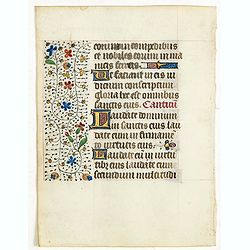 eorum in compedibus
et nobiles eorum in ma
nicis ferreis
Ut faciant in eis iu
dicium conscriptum
gloria hec est omnibus
sanctis eius Canticum
Laudate dominum
in sanctis eius lau
date eum in firmame
to virtutis eius
Laudate eum in virtu
tibus eius laudate eum
secundum multitudi